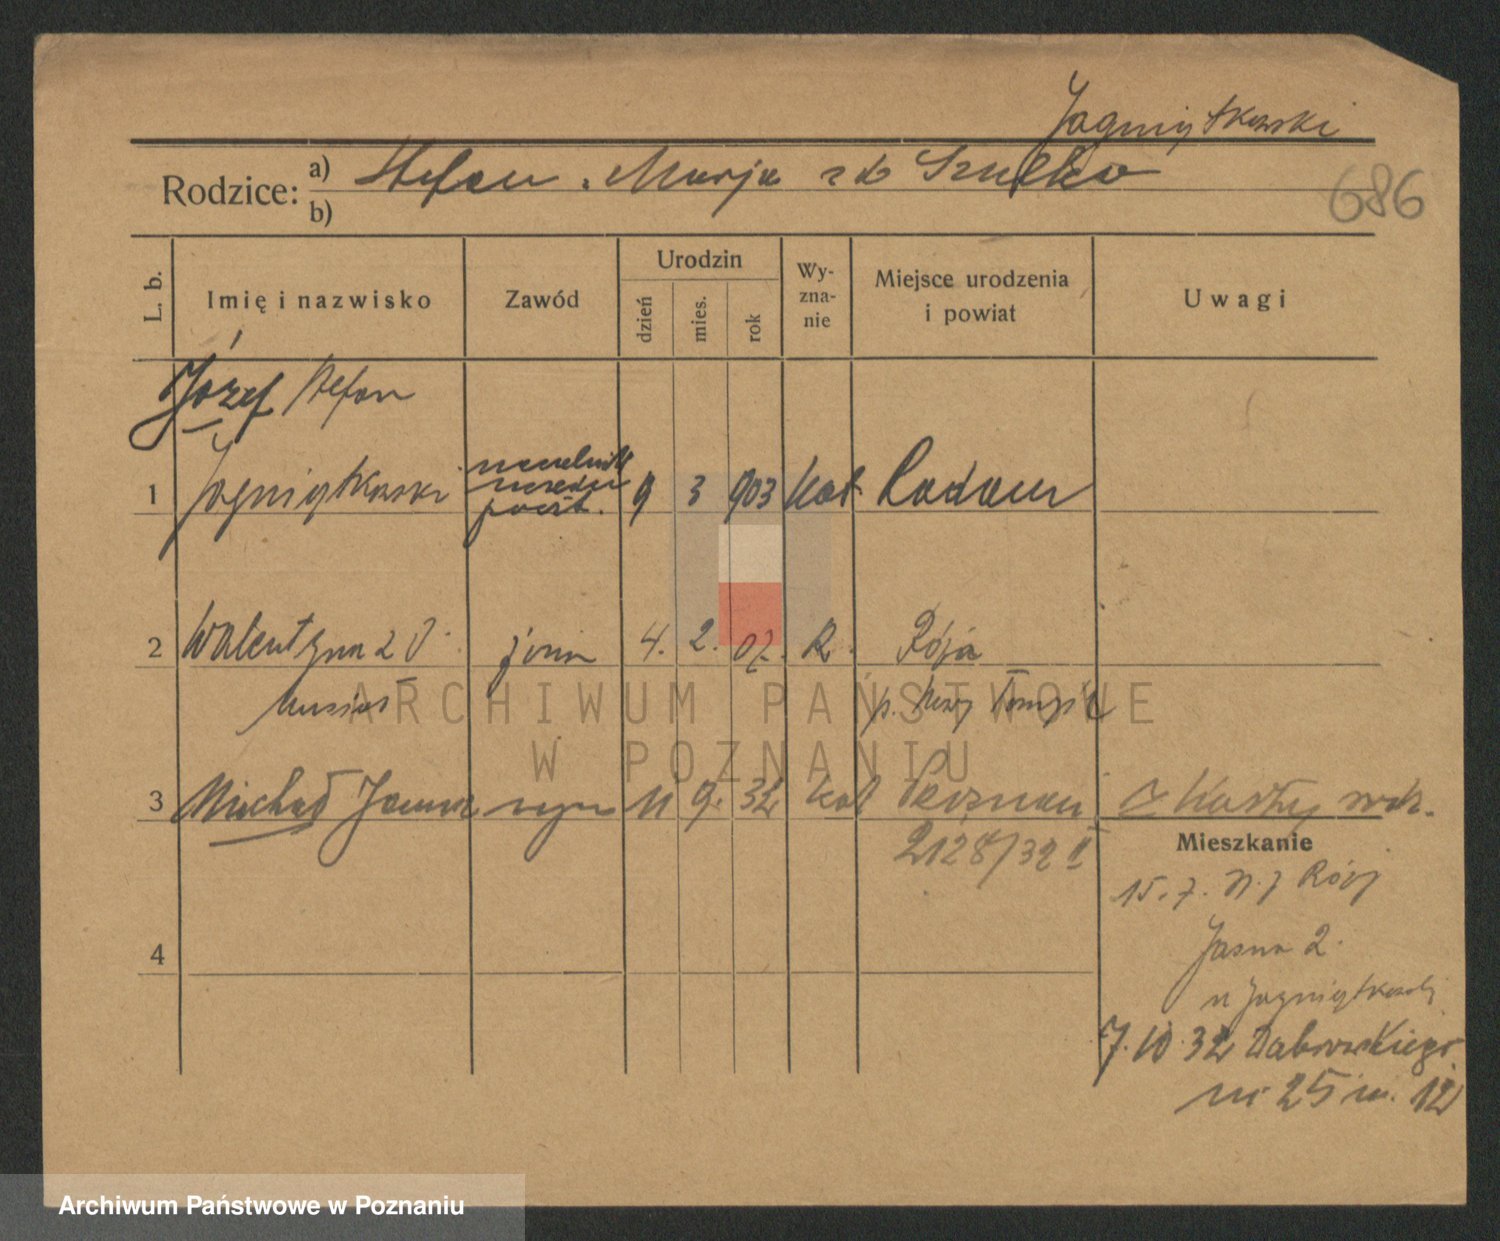 Jagmiątkowski
Rodzice: a) Stefan . Marja z d. Szulka
b)
686
L. b. Imię i nazwisko Zawód Urodzin dzień mies. rok Wyznanie Miejsce urodzenia i powiat Uwagi
Józef Stefan
1 Jagmiątkowski naczelnik urzędu poczt. 9 3 903 kat Radom
2 Walentyna z d. żona 4. 2. 07. R. Róża
p. Nowy Tomyśl
3 Michał Janusz syn 11 9. 32 kat Poznań
2128/32 II
Mieszkanie
15. 7.
Jasna 2.
u Jagmiątkowski
4
7.10.32 Dąbrowskiego
nr 25 m. 12
ARCHIWUM PAŃSTWOWE
W POZNANIU
Archiwum Państwowe w Poznaniu